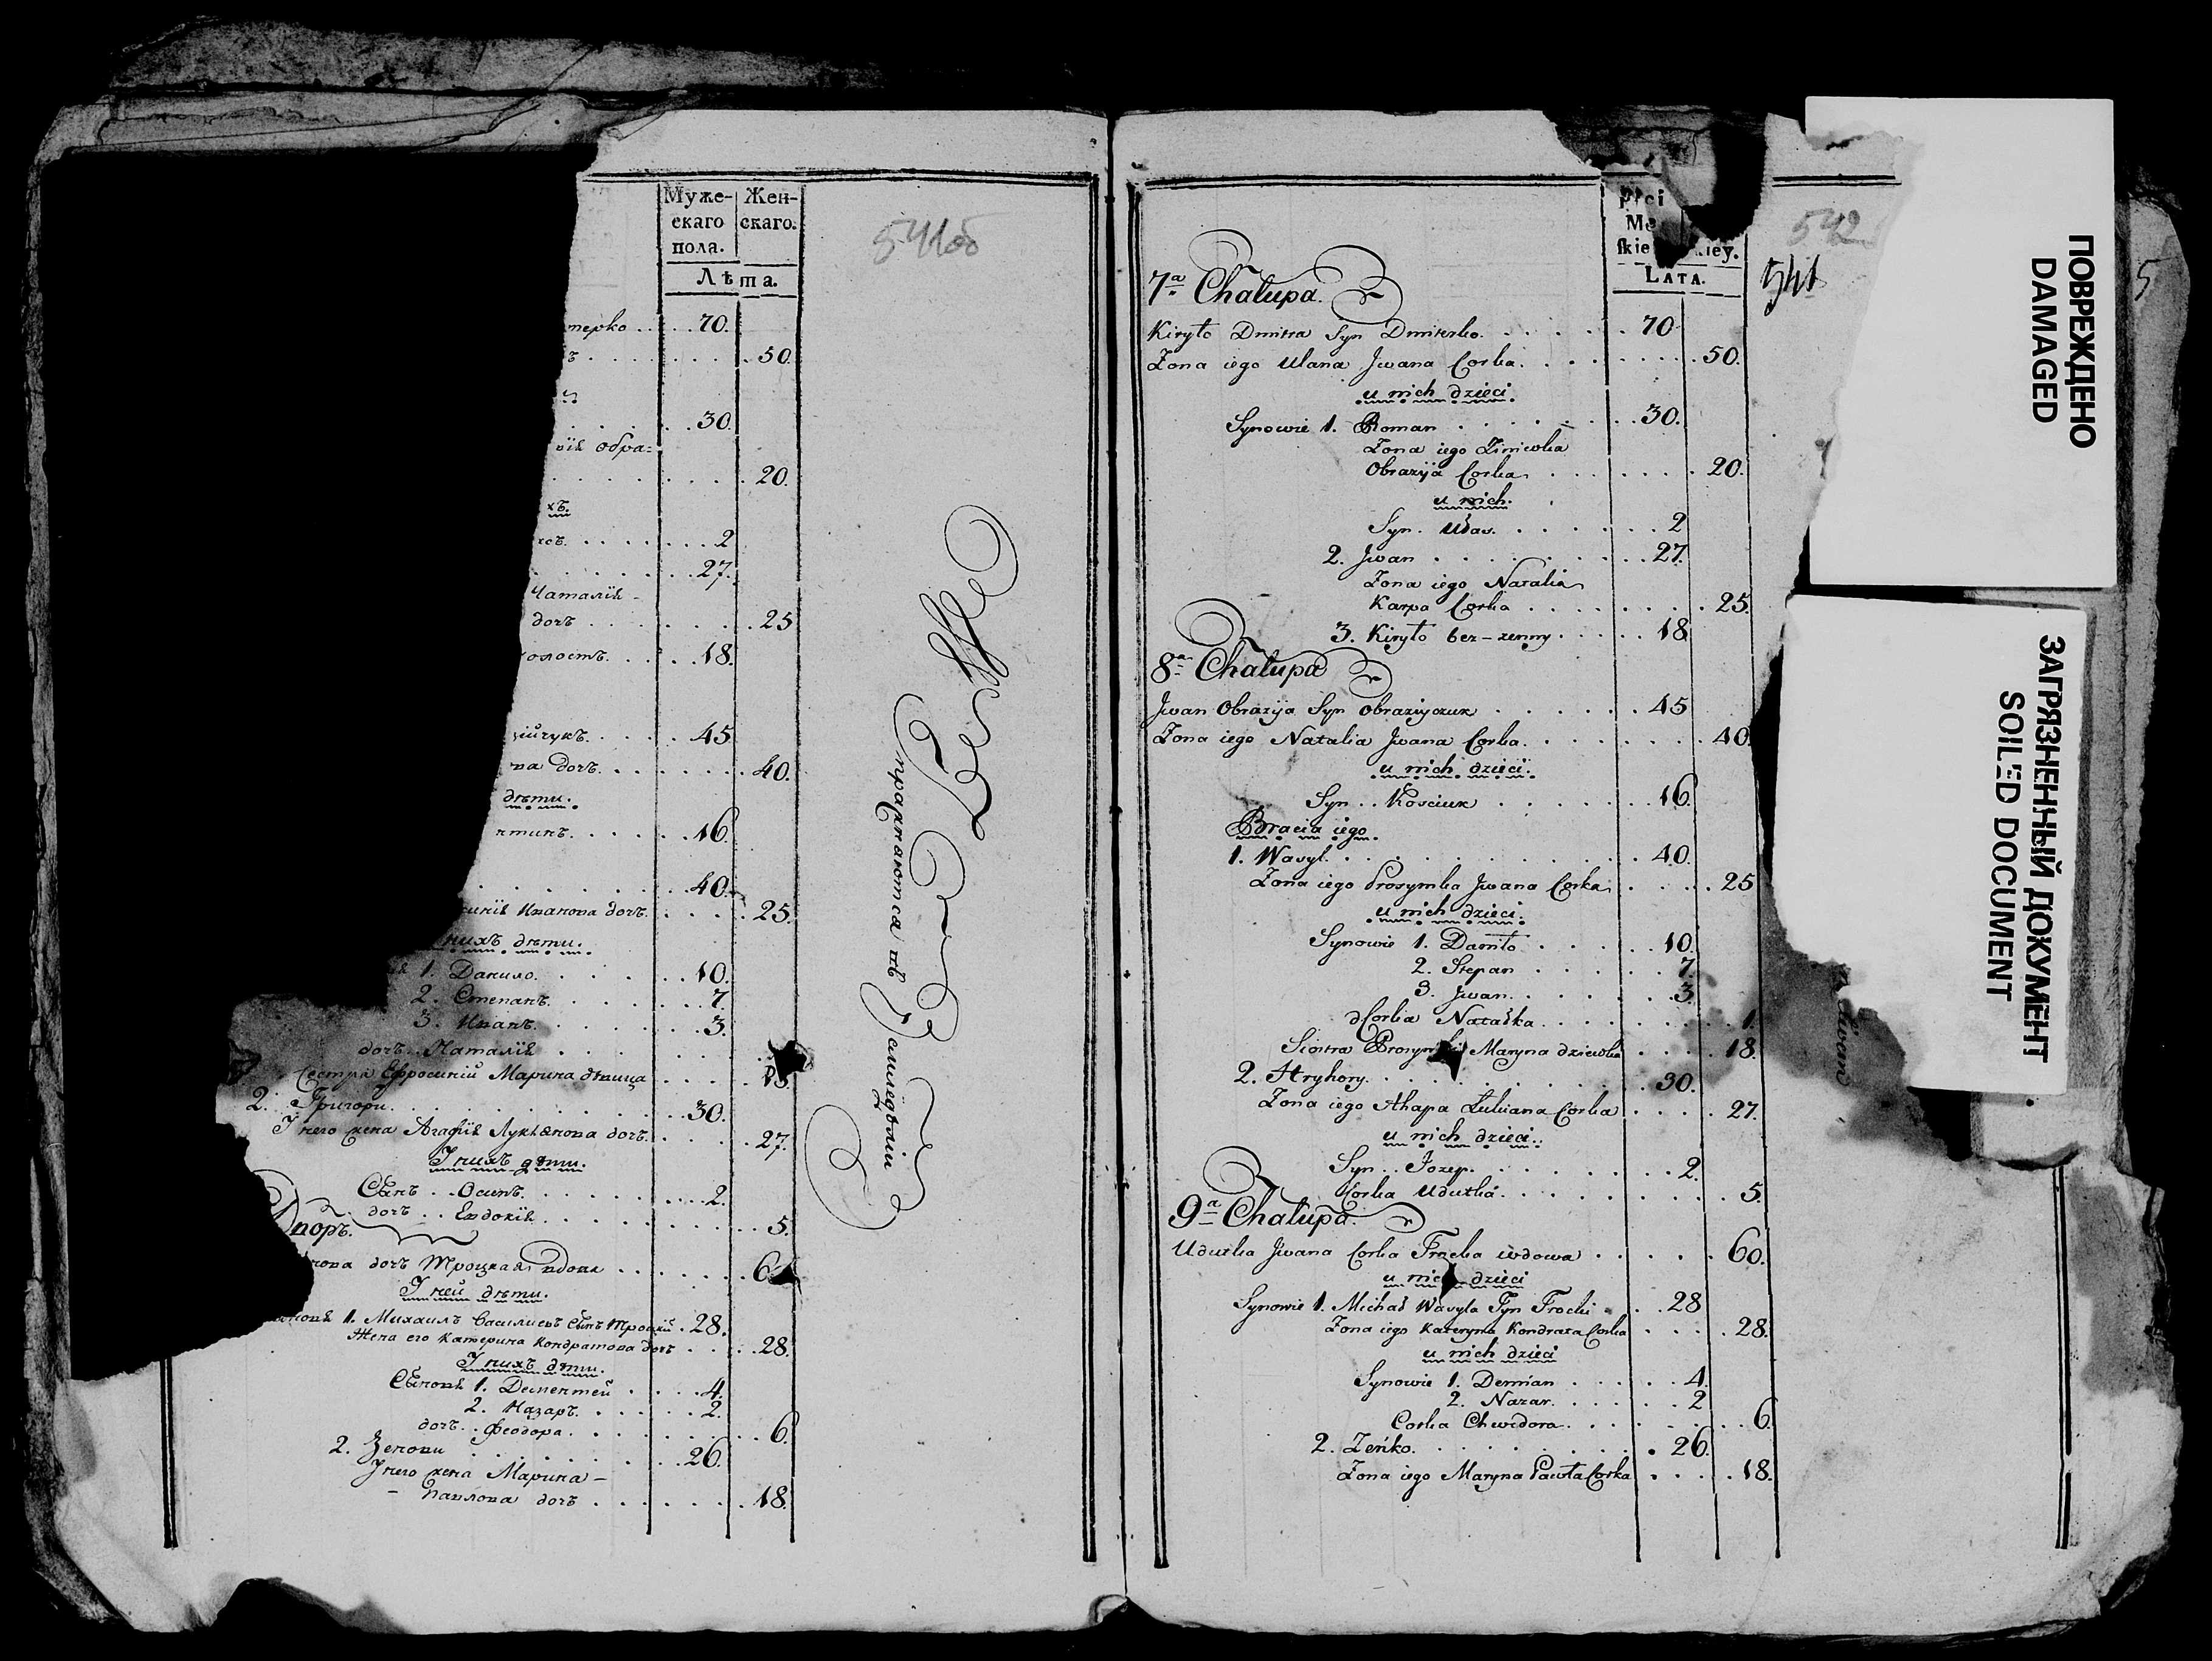 Муже-
скаго
пола.
Жен-
скаго.
Лѣта.
541об
терко . . . . 70.
ъ . . . . . . . 50.
. . 30.
вія обра=
. . . . 20.
хъ.
. . . . 2
. . . . 27.
Наталія -
дочъ . . . . 25
олостъ. . . . 18.
ійчукъ. . . . 45
ва дочъ. . . . 40.
дѣти.
нтинъ. . . . 16.
. . . . 40.
синія Иванова дочъ. . . . 25.
нихъ дѣти.
1. Данило. . . . 10.
2. Степанъ. . . . 7.
3. Иванъ. . . . 3.
дочъ . . Наталія . . .
Сестра Ефросиніи Марина дѣвица . . . 18.
2. Григори. . . . 30.
У него жена Агафія Лукьянова дочъ. . . . 27.
У нихъ дѣти.
Сынъ . . Осипъ. . . . 2.
дочъ . . Евдокія . . . . 5.
Дворъ.
нова дочъ Троцкая вдова . . . . 6
У ней дѣти.
1. Михаилъ Васильевъ Сынъ Троцкій . 28.
Жена его Катерина Кондратова дочъ . . . 28.
У нихъ дѣти.
Сыновя 1. Дементей . . . 4.
2. Назаръ. . . . 2.
дочъ . . Феодора. . . . 6.
2. Зенови . . . . 26.
У него жена Марина -
- Павлова дочъ . . . . 18.
542
541
płci
Mę
skie
kiey.
LATA.
7a Chałupa.
Kiryło Dmitra Syn Dmiterko. . . . 70
Zona iego Ulana Jwana Corka. . . . 50.
u nich dzieci.
Synowie 1. Roman . . . . 30.
Zona iego Ziniewka
Obrazyja Corka . . . . 20.
u nich.
Syn. Ułas. . . . 2
2. Jwan . . . . 27.
Zona iego Natalia
Karpa Corka . . . . 25.
3. Kiryło bez-zenny. . . . 18
8a Chałupa
Jwan Obrazyja Syn Obraziyczuk . . . . 45
Zona iego Natalia Jwana Corka. . . . 40.
u nich dzieci.
Syn . . Kosciuk . . . . 16.
Bracia iego.
1. Wasyl. . . . 40.
Zona iego Prosymka Jwana Corka . . . 25
u nich dzieci.
Synowie 1. Daniło . . . . 10.
2. Stepan . . . . 7.
3. Jwan. . . . 3.
Corka Natałka. . . . 1.
Siostra Maryna dziewka . . . 18.
2. Hryhory. . . . 30.
Zona iego Ahapa Łukiana Corka . . . 27.
u nich dzieci.
Syn . . Jozep. . . . 2.
Corka Udutka. . . . 5.
9a Chałupa.
Udutka Jwana Corka Trocka wdowa . . . . 60.
u nich dzieci
Synowie 1. Michał Wasyla Syn Trocki . . . 28
Zona iego Kateryna Kondrata Corka . . . 28.
u nich dzieci
Synowie 1. Demian . . . . 4.
2. Nazar. . . . 2
Corka Chwedora. . . . 6.
2. Zeńko. . . . 26.
Zona iego Maryna Pawła Corka . . . 18.
ПОВРЕЖДЕНО
DAMAGED
ЗАГРЯЗНЕННЫЙ ДОКУМЕНТ
SOILED DOCUMENT
5